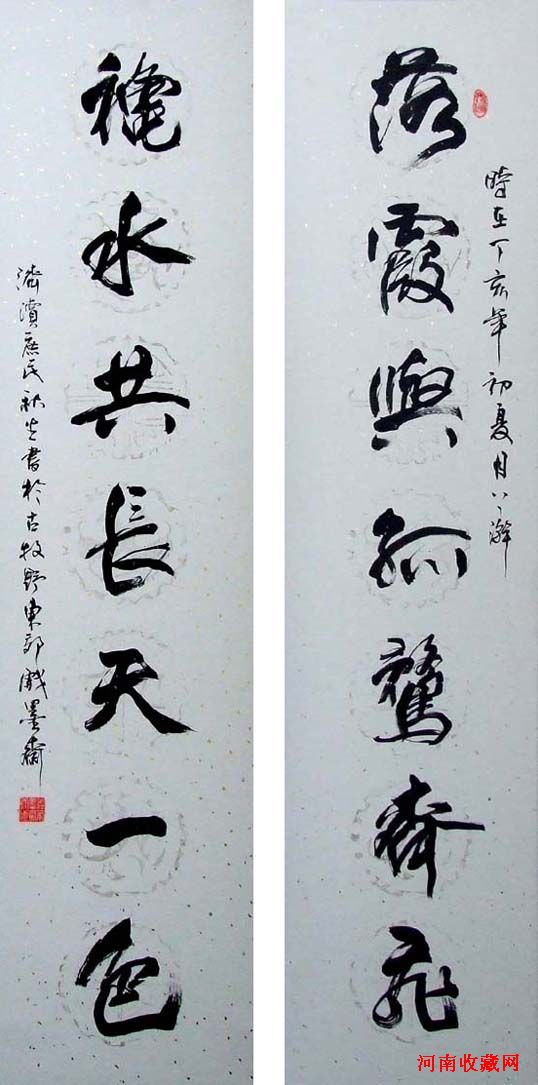 時在丁亥年初夏月澣
落霞與孤鶩齊飛
穐水共長天一色
濟瀆庶民書於古牧野東郊戲墨齋
河南收藏网